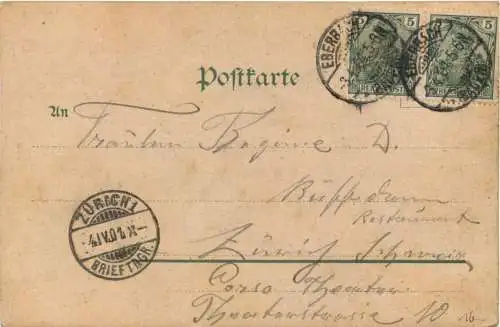 5 5
EBERBACH
Postkarte
An
Fräulein Regine D.
Büffedam
Restaurant
ZÜRICH 1
4.IV.01.
BRIEFTRGR.
Zürich Schweiz
Corso Theater
Theaterstrasse 10